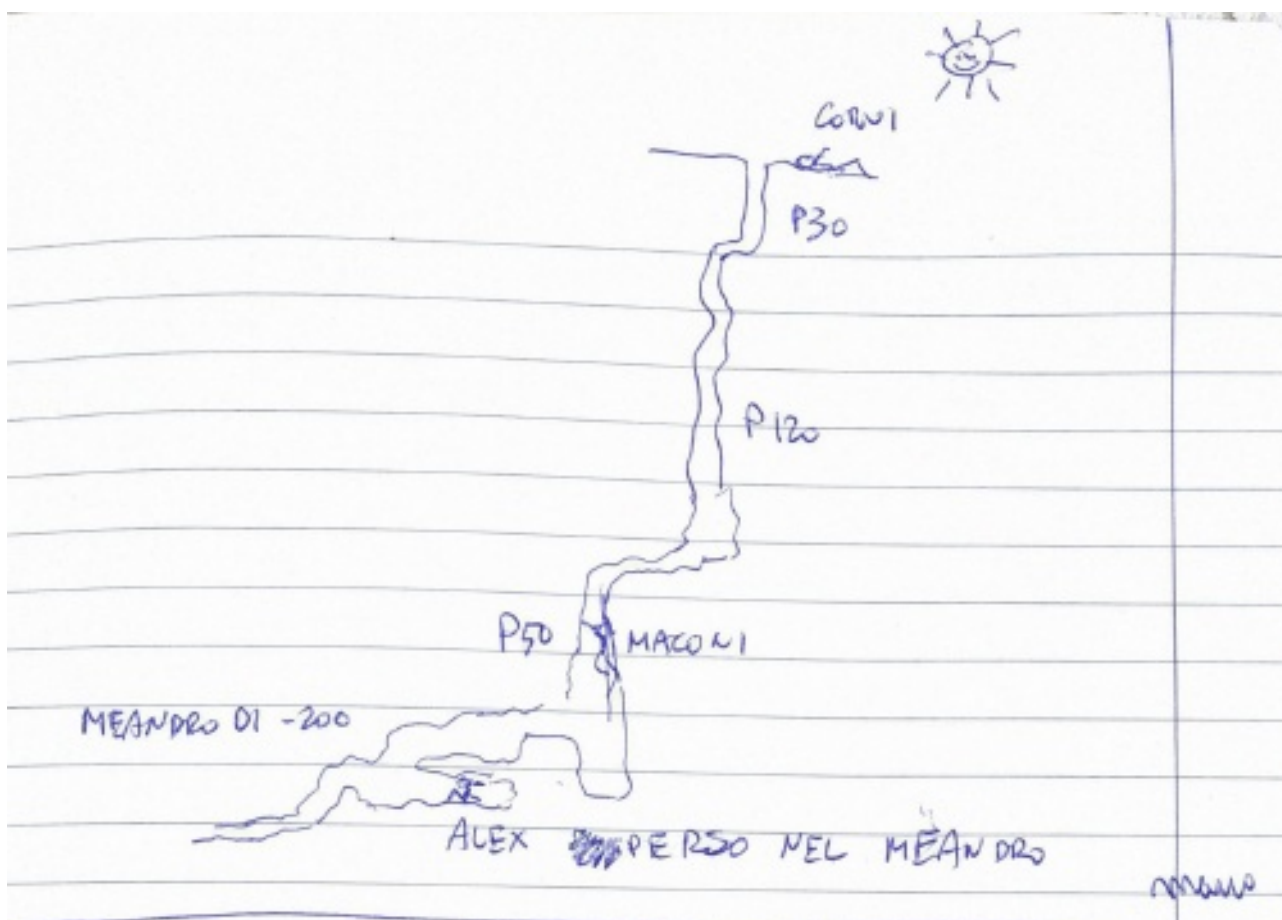 CORVI
P30
P120
P50 MACONI
MEANDRO DI -200
ALEX PERSO NEL MEANDRO